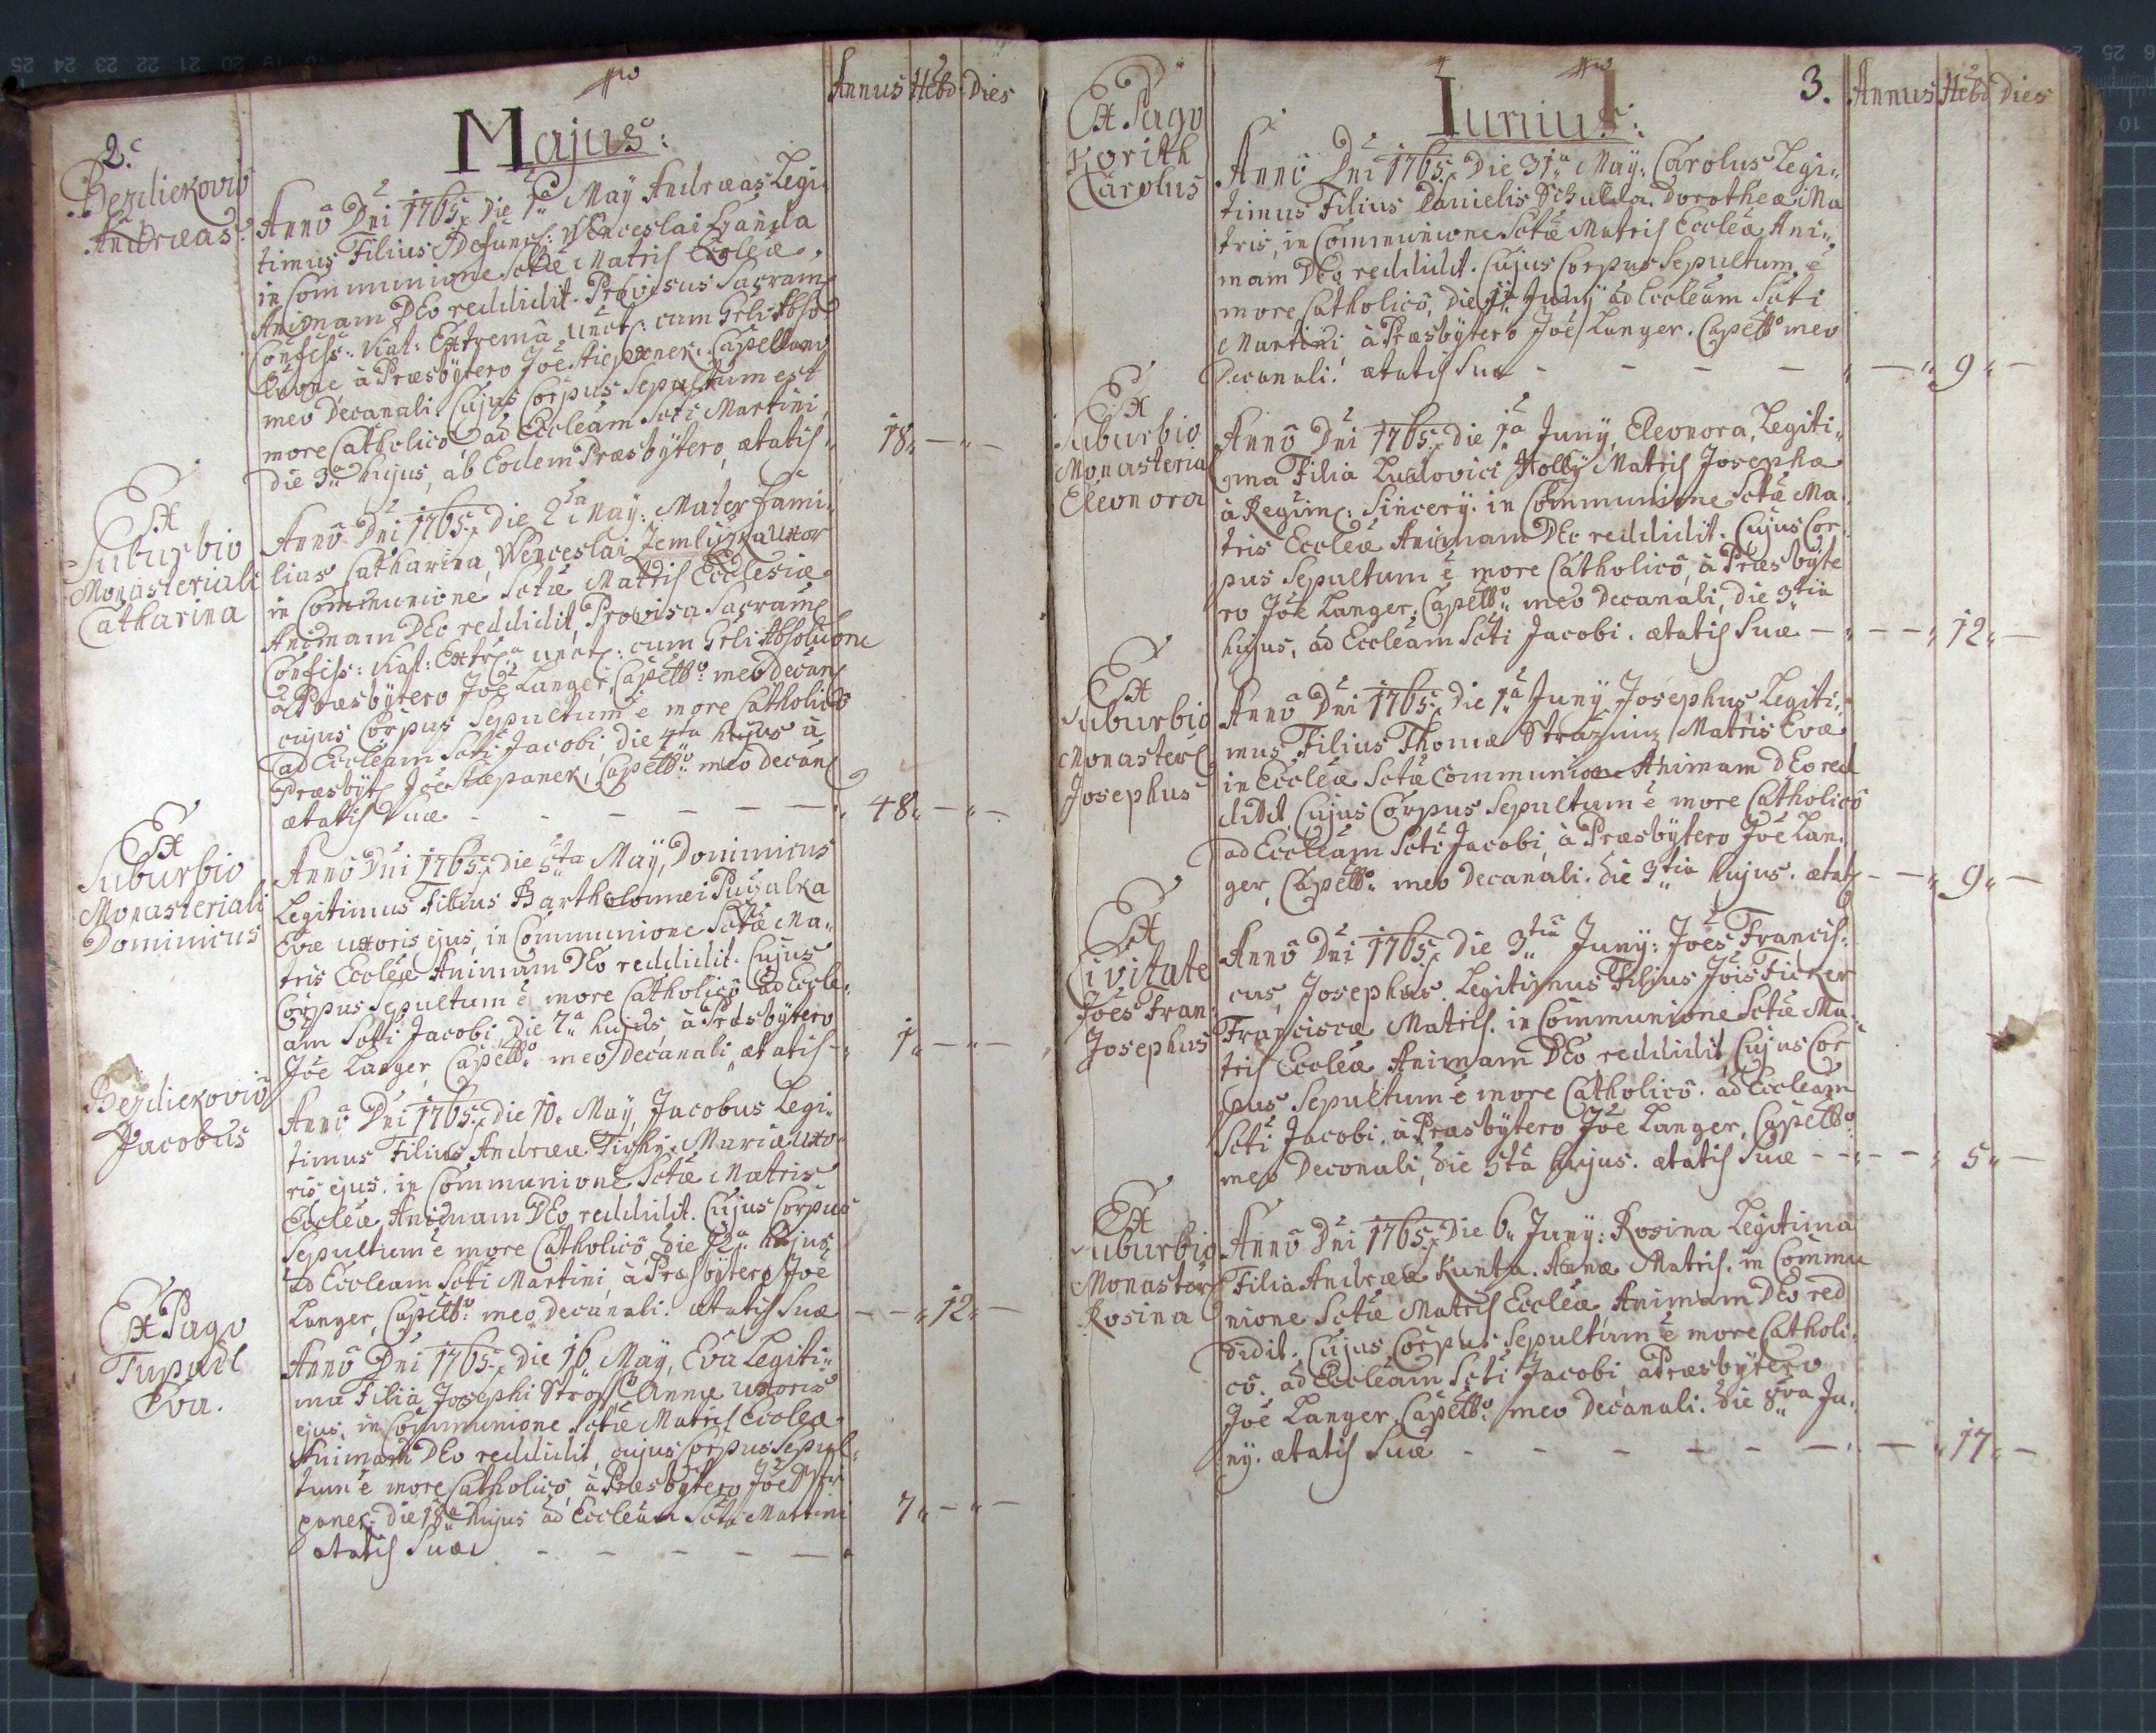 2.
Majus:
Annus Hebd. Dies
Bezdiekovio
Andreas.
Anno Dni 1765. Die 1ma May Andreas Legi-
timus Filius Defunct: Wenceslai
in Communione Sctae Matris Ecclae
Animam DEo reddidit. Provisus Sacram
Confess: Viat: Extrema unct: cum Grli Abso
lu͞one à Præsbÿtero Joe Stiepanek. Capellano
meo Decanali. Cujus Corpus Sepultum est
more Catholico ad Eccleam Scti Martini
die 3a hujus, ab Eodem Præsbÿtero, ætatis 18
Ex
Suburbio
Monasteriali
Catharina
Anno Dni 1765. Die 2da May: Mater fami-
lias Catharina, Wenceslai Zemlizka Uxor
in Communione Sctæ Matris Ecclesiæ
Animam DEo reddidit, Provisa Sacram
Confess: Viat: Extr. unct: cum Grli Absolutione
à Præsbÿtero Joe Langer, Capello meo Decan
cujus Corpus Sepultum e more Catholico
ad Eccleam Scti Jacobi, die 4ta hujus à
Præsbÿt Joe Stiepanek, Capello meo Decan
ætatis Suæ - - - - 48
Ex
Suburbio
Monasteriali
Dominicus
Anno Dni 1765. Die 5ta Maÿ, Dominicus
Legitimus Filius Bartholomæi
Evæ uxoris ejus, in Communione Sctæ Ma-
tris Eccleæ Animam DEo reddidit. Cujus
Corpus Sepultum e more Catholico ad Eccle-
am Scti Jacobi, Die 7a hujus, à Præsbÿtero
Joe Langer, Capello meo Decanali, ætatis 1
Bezdiekovio
Jacobus
Anno Dni 1765. Die 10. May, Jacobus Legi-
timus Filius Andreæ Tichÿ, Mariæ uxo-
ris ejus. in Communione Sctæ Matris
Eccleæ, Animam DEo reddidit. Cujus Corpus
Sepultum e more Catholico die 12a hujus
ad Eccleam Scti Martini, à Præsbÿtero Joe
Langer, Capello meo Decanali. ætatis Suæ - - 12
Ex Pago
Tupadl
Eva.
Anno Dni 1765. Die 16. May, Eva Legiti-
ma Filia Josephi Annæ uxoris
ejus, in Communione Sctæ Matris Eccleæ
Animam DEo reddidit, cujus Corpus Sepul-
tum e more Catholico, à Præsbÿtero Joe Stie-
panek. Die 18a hujus ad Eccleam Scti Martini 7
ætatis Suæ - - - - -
3.
Junius:
Annus Hebd Dies
Ex Pago
Korith
Carolus
Anno Dni 1765. Die 31a May: Carolus Legi-
timus Filius Danielis Schulda. Dorotheæ Ma
tris, in Communione Sctæ Matris Eccleæ Ani-
mam DEo reddidit. Cujus Corpus Sepultum e
more Catholico, Die Junÿ ad Eccleam Scti
Martini à Præsbÿtero Joe Langer. Capello meo
Decanali. ætatis Suæ - - - - 9
Ex
Suburbio
Monasteria
Eleonora
Anno Dni 1765. Die 1a Junÿ, Eleonora, Legiti-
ma Filia Ludovici Hollÿ Matris Josephæ
à Regim: Sincerÿ. in Communione Sctæ Ma-
tris Eccleæ Animam DEo reddidit. Cujus Cor-
pus Sepultum e more Catholico, à Præsbÿte
ro Joe Langer, Capello meo Decanali, die 3tia
hujus, ad Eccleam Scti Jacobi. ætatis Suæ - - - 12
Ex
Suburbio
Monaster
Josephus
Anno Dni 1765. Die 1a Junÿ Josephus, Legiti-
mus Filius Thomæ Matris Evæ
in Eccleæ Sctæ Communione Animam DEo red
didit, Cujus Corpus Sepultum e more Catholico
ad Eccleam Scti Jacobi, à Præsbÿtero Joe Lan-
ger, Capello meo Decanali. Die 3tia hujus. ætat - - 9
Ex
Civitate
Joes Fran:
Josephus
Anno Dni 1765. Die 3tia Junÿ: Joes Francis-
cus, Josephus. Legitimus Filius Jois Ficker
Franciscæ Matris. in Communione Sctæ Ma-
tris Eccleæ Animam DEo reddidit, Cujus Cor
pus Sepultum e more Catholico. ad Eccleam
Scti Jacobi, à Præsbÿtero Joe Langer, Capello
meo Deconali, die 5ta hujus. ætatis Suæ - - - - 5
Ex
Suburbio
Monaster
Rosina
Anno Dni 1765. Die 6. Junÿ: Rosina Legitima
Filia Andreæ Kunta. Annæ Matris. in Commu
nione Sctæ Matris Eccleæ Animam DEo red
didit. Cujus Corpus Sepultum e more Catholi-
co. ad Eccleam Scti Jacobi à Præsbÿtero
Joe Langer, Capello meo Decanali. Die 8va Ju-
nÿ. ætatis Suæ - - - - - - 17